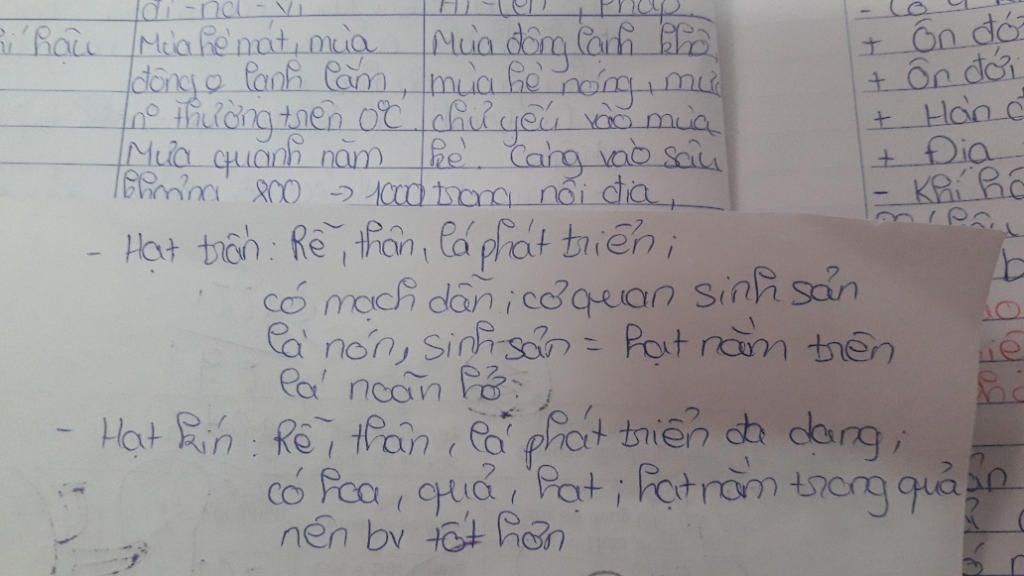 hậu
Mùa hè mát, mùa
đông o lạnh lắm,
nº thường trên 0ºC.
Mưa quanh năm
khoảng 800 → 1000
Mùa đông lạnh khô
mùa hè nóng, mưa
chủ yếu vào mùa
hè. Càng vào sâu
trong nội địa,
+ Ôn đới
+ Ôn đới
+ Hàn
+ Địa
- Khí
- Hạt trần: Rễ, thân, lá phát triển;
có mạch dẫn; cơ quan sinh sản
là nón, sinh sản = hạt nằm trên
lá noãn hở.
- Hạt kín: Rễ, thân, lá phát triển đa dạng;
có hoa, quả, hạt; hạt nằm trong quả
nên bv tốt hơn